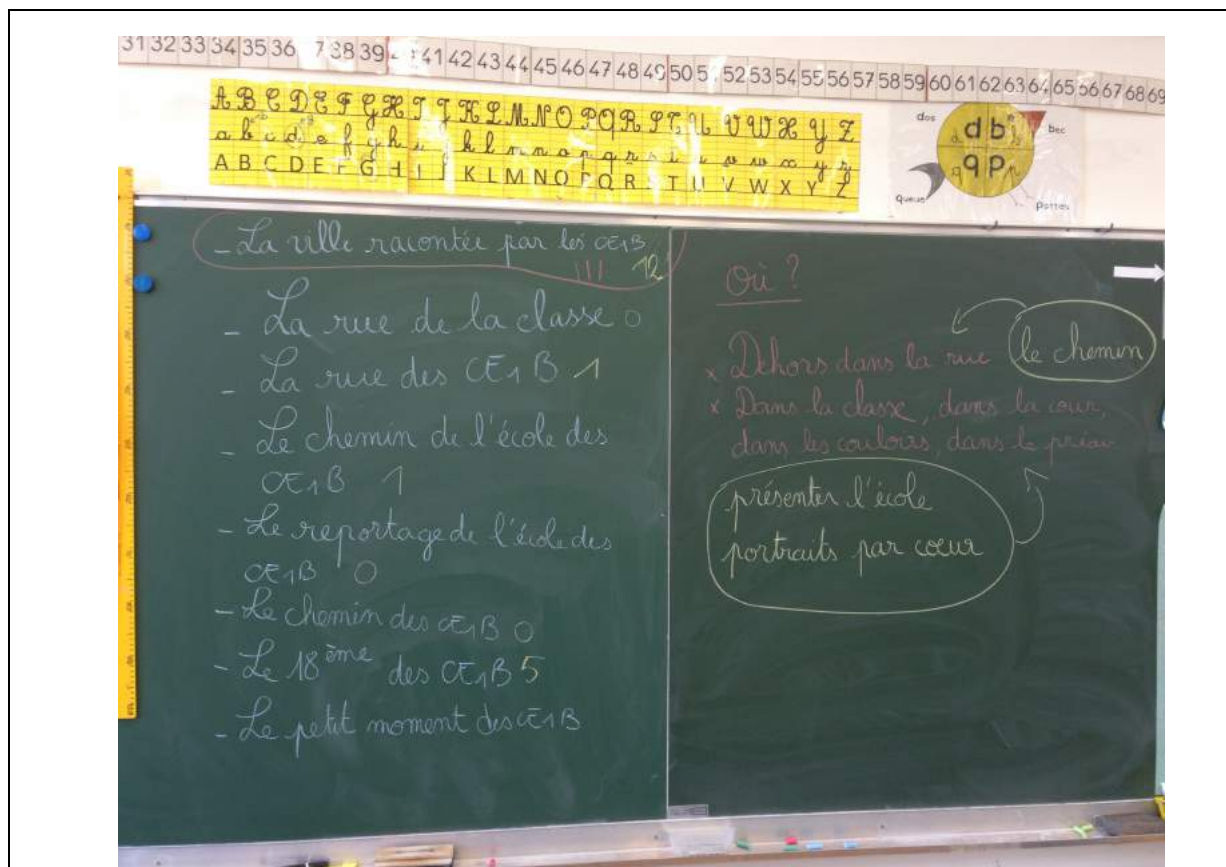 31 32 33 34 35 36 7 38 39 41 42 43 44 45 46 47 48 49 50 5 52 53 54 55 56 57 58 59 60 61 62 63 64 65 66 67 68 69
A B C D E F G H I J K L M N O P Q R S T U V W X Y Z
a b c d e f g h i k l m n o p q r s i u v w x y z
A B C D E F G H I J K L M N O P Q R S T U V W X Y Z
dos
d b
bec
q p
queue
pattes
- La ville racontée par les CE1B
12
- La rue de la classe 0
- La rue des CE1B 1
- Le chemin de l'école des
CE1B 1
- Le reportage de l'école des
CE1B 0
- Le chemin des CE1B 0
- Le 18ème des CE1B 5
- Le petit moment des CE1B
Où ?
x Dehors dans la rue
le chemin
x Dans la classe, dans la cour,
dans les couloirs, dans le préau
présenter l'école
portraits par coeur